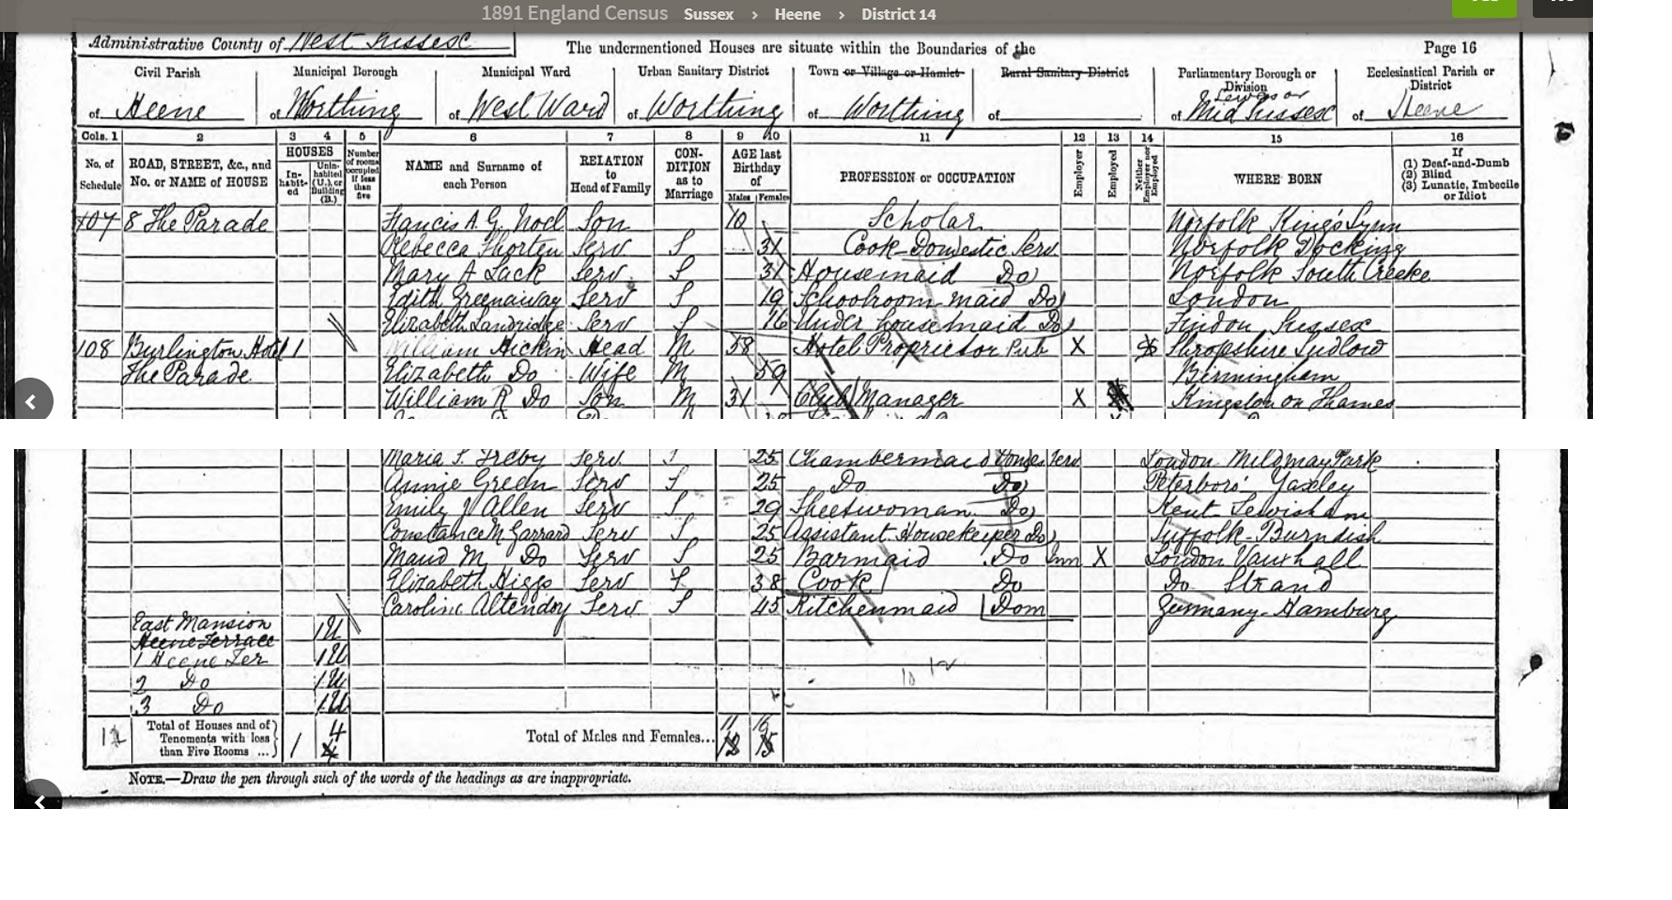 1891 England Census Sussex > Heene > District 14
Administrative County of West Sussex
The undermentioned Houses are situate within the Boundaries of the
Page 16
Civil Parish
Municipal Borough
Municipal Ward
Urban Sanitary District
Town or Village or Hamlet
Rural Sanitary District
Parliamentary Borough or Division
Ecclesiastical Parish or District
of Heene
of Worthing
of West Ward
of Worthing
of Worthing
of
of Lewes or Mid Sussex
of Heene
Cols. 1 2 3 4 5 6 7 8 9 10 11 12 13 14 15 16
No. of Schedule
ROAD, STREET, &c., and No. or NAME of HOUSE
HOUSES
Inhabited
Uninhabited (U.), or Building (B.)
Number of rooms occupied if less than five
NAME and Surname of each Person
RELATION to Head of Family
CONDITION as to Marriage
AGE last Birthday of
Males Females
PROFESSION or OCCUPATION
Employer
Employed
Neither Employer nor Employed
WHERE BORN
If
(1) Deaf-and-Dumb
(2) Blind
(3) Lunatic, Imbecile or Idiot
107 8 The Parade Francis A. G. Noel Son 10 Scholar Norfolk King's Lynn
Rebecca Serv S 31 Cook Domestic Serv. Norfolk Docking
Mary A Lack Serv. S 31 Housemaid Do Norfolk South Creake
Edith Greenaway Serv S 19 Schoolroom maid Do London
Elizabeth Landridge Serv S 16 Under housemaid Do Findon Sussex
108 Burlington Hotel 1 William Hickin Head M 58 Hotel Proprietor Pub X Shropshire Ludlow
The Parade Elizabeth Do Wife M 59 Birmingham
William R Do Son M 31 Club Manager X Kingston on Thames
Maria S. Serv S 25 Chambermaid Domes Serv London Mildmay Park
Annie Green Serv S 25 Do Do Peterboro' Yaxley
Emily J Allen Serv S 29 Do Kent Lewisham
Constance M Garrard Serv S 25 Assistant Housekeeper Do Suffolk
Maud M Do Serv S 25 Barmaid Do Inn X London Vauxhall
Elizabeth Higgs Serv S 38 Cook Do Do Strand
Caroline Serv S 45 Kitchenmaid Dom Germany Hamburg
East Mansion 1U
Heene Terrace
1 Heene Ter 1U
2 Do 1U
3 Do 1U
Total of Houses and of Tenements with less than Five Rooms ... 1 4
Total of Males and Females... 11 16
NOTE.—Draw the pen through such of the words of the headings as are inappropriate.